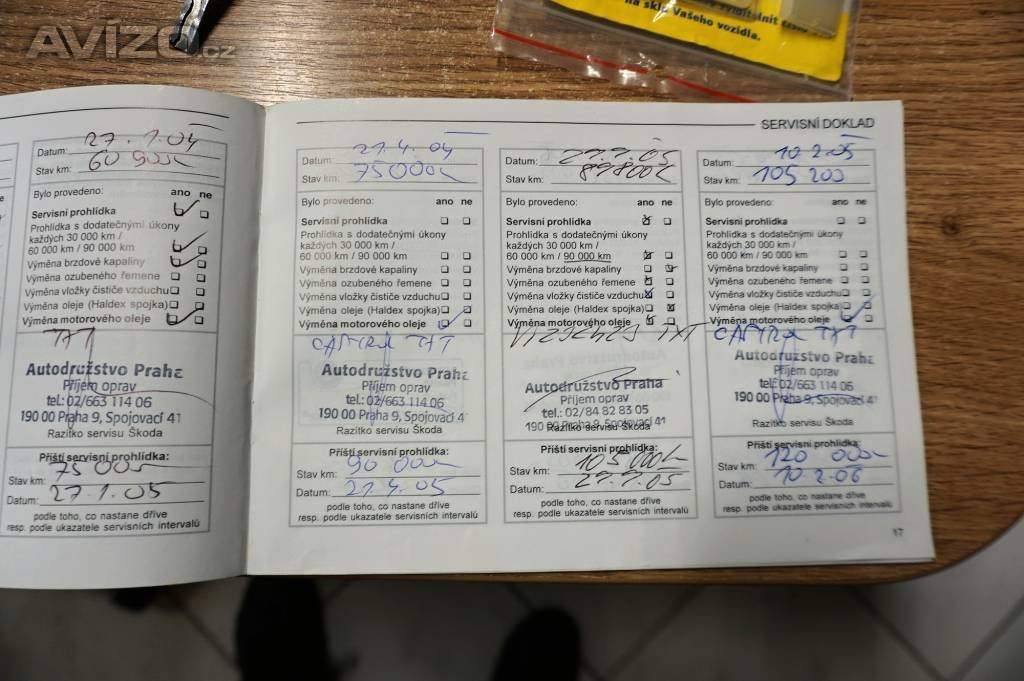 AVIZO.cz
vyplnit
na sklo Vašeho vozidla.
SERVISNÍ DOKLAD
Datum: 27.1.04
Stav km: 60 900
Bylo provedeno: ano ne
Servisní prohlídka
Prohlídka s dodatečnými úkony
každých 30 000 km /
60 000 km / 90 000 km
Výměna brzdové kapaliny
Výměna ozubeného řemene
Výměna vložky čističe vzduchu
Výměna oleje (Haldex spojka)
Výměna motorového oleje
Autodružstvo Praha
Příjem oprav
tel.: 02/663 114 06
190 00 Praha 9, Spojovací 41
Razítko servisu Škoda
Příští servisní prohlídka:
Stav km: 75 000
Datum: 27.1.05
podle toho, co nastane dříve
resp. podle ukazatele servisních intervalů
Datum: 21.4.04
Stav km: 75000
Bylo provedeno: ano ne
Servisní prohlídka
Prohlídka s dodatečnými úkony
každých 30 000 km /
60 000 km / 90 000 km
Výměna brzdové kapaliny
Výměna ozubeného řemene
Výměna vložky čističe vzduchu
Výměna oleje (Haldex spojka)
Výměna motorového oleje
Autodružstvo Praha
Příjem oprav
tel.: 02/663 114 06
190 00 Praha 9, Spojovací 41
Razítko servisu Škoda
Příští servisní prohlídka:
Stav km: 90 000
Datum: 21.4.05
podle toho, co nastane dříve
resp. podle ukazatele servisních intervalů
Datum:
Stav km: 89800
Bylo provedeno: ano ne
Servisní prohlídka
Prohlídka s dodatečnými úkony
každých 30 000 km /
60 000 km / 90 000 km
Výměna brzdové kapaliny
Výměna ozubeného řemene
Výměna vložky čističe vzduchu
Výměna oleje (Haldex spojka)
Výměna motorového oleje
Autodružstvo Praha
Příjem oprav
tel.: 02/84 82 83 05
190 00 Praha 9, Spojovací 41
Razítko servisu Škoda
Příští servisní prohlídka:
Stav km: 105 000
Datum:
podle toho, co nastane dříve
resp. podle ukazatele servisních intervalů
Datum: 10.2.05
Stav km: 105 200
Bylo provedeno: ano ne
Servisní prohlídka
Prohlídka s dodatečnými úkony
každých 30 000 km /
60 000 km / 90 000 km
Výměna brzdové kapaliny
Výměna ozubeného řemene
Výměna vložky čističe vzduchu
Výměna oleje (Haldex spojka)
Výměna motorového oleje
Autodružstvo Praha
Příjem oprav
tel.: 02/663 114 06
190 00 Praha 9, Spojovací 41
Razítko servisu Škoda
Příští servisní prohlídka:
Stav km: 120 000
Datum: 10.2.06
podle toho, co nastane dříve
resp. podle ukazatele servisních intervalů
17